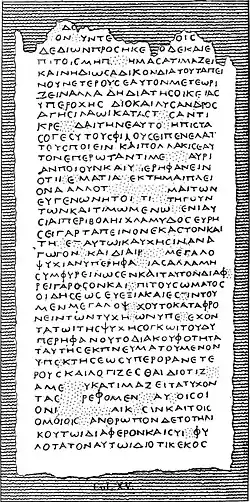 ΔΙ
ΟΝ ΥΝΤΕ ΟΙϹ
ΔΕΔΙΩΝΠΡΟϹΗΚΕ ΟΔΕΙΚΑΙΕ
ΠΙΤΟΙϹΜΗΠ ΗΜΑϹΑΤΙΜΑΖΕΙ
ΚΑΙΝΗΔΙΩϹΑΔΙΚΟΝΔΙΑΤΟΥΤΑΠΕΙ
ΝΟΥΝΕΤΕΡΟΥϹΕΑΥΤΟΝΜΕΤΕΩΡΙ
ΖΕΙΝΑΛΛΑΔΗΔΙΑΤΗϹΟΙΚΕΙΑϹ
ΥΠΕΡΟΧΗϹ ΔΙΟΚΑΙΛΥϹΑΝΔΡΟϹ
ΑΓΗϹΙΛΑΩΙΚΑΤΑϹΤ ϹΑΝΤΙ
ΚΡΕ ΔΑΙΤΗΝΕΑΥΤΟ ΗΠΙϹΤΑ
ϹΟΓΕϹΥΤΟΥϹΦΙΛΟΥϹΕΙΠΕΝΕΛΑΤ
ΤΟΥϹΠΟΙΕΙΝ ΚΑΙΠΟΛΛΑΚΙϹΕΑΥ
ΤΟΝΕΠΕΡΩΤΑΝΤΙΜΕ ΑΥΡΙ
ΑΝΠΟΙΟΥΝΚΑΙΥ ΕΡΗΦΑΝΕΙΝ
ΟΤΙ ΕΜΑΤΙΑ ΕΚΤΗΜΑΙΠΛΕΙ
ΟΝΑΑΛΛΟΤ ΜΑΙΤΩΝ
ΕΥΓΕΝΩΝΗΤΟΙ ΤΙ ΤΗΓΥΝ
ΤΩΝΚΑΙΤΙΜΩΜΕΝΩ ΕΝΙΑΥ
ϹΙΑΠΕΡΙΒΟΛΗΙΧΛΑΜΥΔΟϹΕΥΡΗϹ
ΕΙΓΑΡΤΑΠΕΙΝΟΝΕΚΑϹΤΟΝΚΑΙ
ΤΗ ΕΤΑΥΤΩΙΚΑΥΧΗϹΙΝΑΝΑ
ΓΩΓΟΝ ΚΑΙΔΙΑΙΡ ΜΕΓΑΛΟ
ΨΥΧΙΑΝΥΠΕΡΗΦ ΙΑϹΑΛΛΑΜΗ
ϹΥΜΦΥΡΕΙΝΩϹΕΝΚΑΙΤΑΥΤΟΝΔΙΑΦ
ΡΕΙΓΑΡΟϹΟΝΚΑΙ ΠΙΤΟΥϹΩΜΑΤΟϹ
ΟΙΔΗϹΕΩϹΕΥΕΞΙΑΚΑΙΕϹΤΙΝΤΟΥ
ΜΕΝΜΕΓΑΛΟΨ ΧΟΥΤΟΚΑΤΑΦΡΟ
ΝΕΙΝΤΩΝΤΥΧΗ ΩΝΥΠΕ ΕΧΟΝ
ΤΑΤΩΙΤΗϹΨΥΧΗϹΟΓΚΩΙΤΟΥΔΥ
ΠΕΡΗΦΑΝΟΥΤΟΔΙΑΚΟΥΦΟΤΗΤΑ
ΤΑΥΤΗϹΕΚΠΝΕΥΜΑΤΟΥΜΕΝΟΝ
ΥΠΕΚΤΗϹΕΩϹΥΠΕΡΟΡΑΝΕΤΕ
ΡΟΥϹΚΑΙΛΟΓΙΖΕϹΘΑΙΔΙΟΤΙΖ
ΑΜΕ ΥΚΑΤΙΜΑΖΕΙΤΑΤΥΧΟΝ
ΤΑϹ ΡΕΦΟΜΕΝ ΑΥ ΟΙϹΟΙ
ΟΝΙ ΑΙΚ ϹΙΝΚΑΙΤΟΙϹ
ΟΜΟΙΟΙϹ ΑΝΘΡΩΠΟΝΔΕΤΟΤΗΝ
ΚΟΥΤΩΙΔΙΑΦΕΡΟΝΚΑΙΥΙ ΦΥ
ΛΟΤΑΤΟΝΑΥΤΩΙΔΙΟΤΙΚΕΚΟϹ
Col. XV.